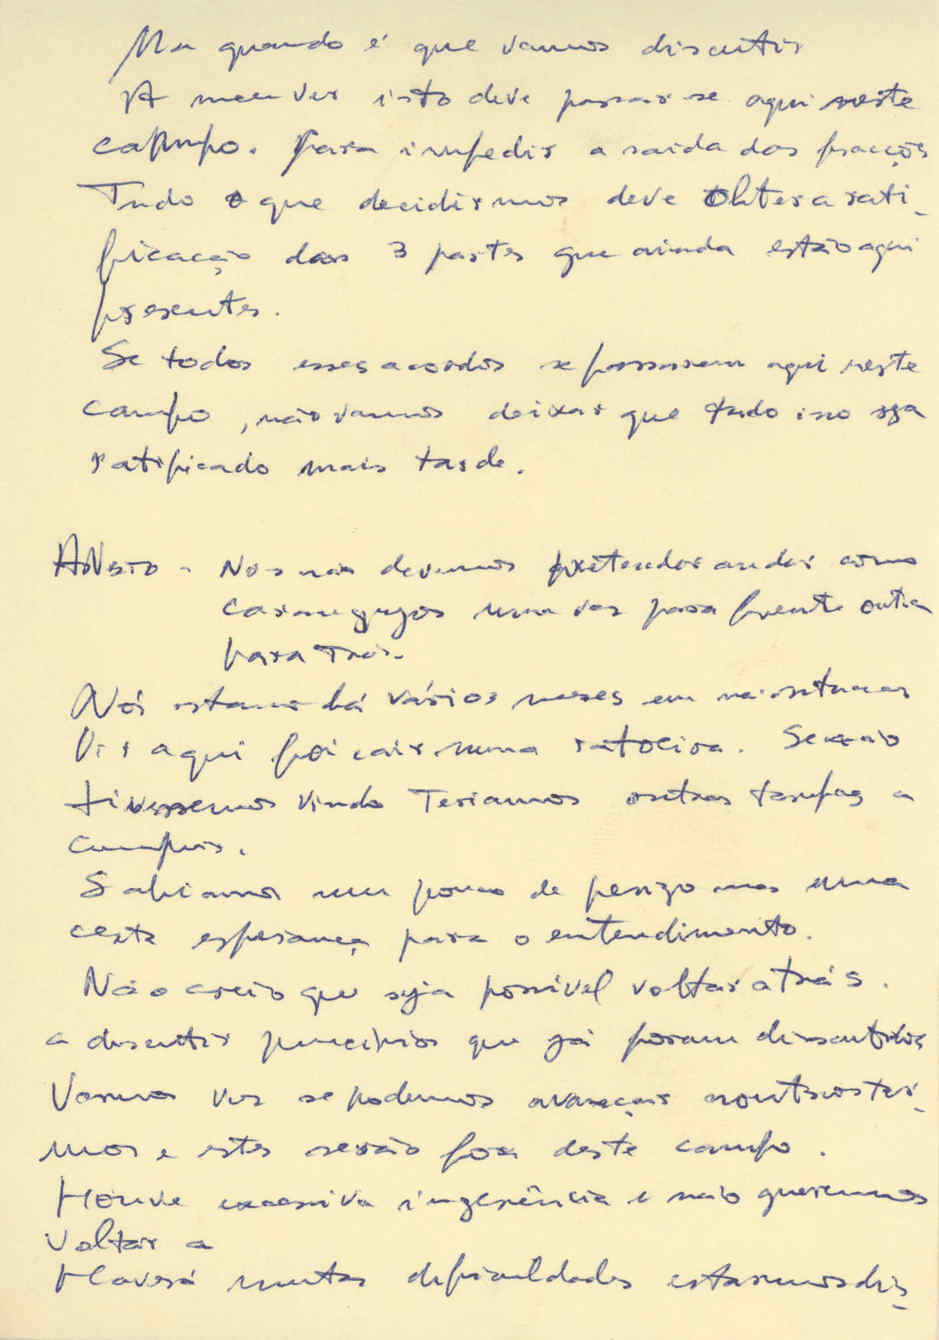 Mas quando é que vamos discutir
A meu ver isto deve passar-se aqui neste
campo. Para impedir a saida das fracções
Tudo o que decidirmos deve obter a rati-
ficacação das 3 partes que ainda estão aqui
presentes.
Se todos esses acordos se passarem aqui neste
campo, não vamos deixar que tudo isso seja
ratificado mais tarde.
A. Neto - Nós não devemos pretender andar como
caranguejos uma vez para frente outra
para trás.
Nós estamos há vários meses em
Vir aqui foi cair numa ratoeira. Se não
tivessemos vindo Teriamos outras tarefas a
cumprir.
Sabiamos um pouco de perigo mas uma
certa esperança para o entendimento.
Não creio que seja possível voltar atrás.
a discutir principios que já foram discutidos
Vamos ver se podemos avançar noutros ter-
mos e estes serão fora deste campo.
Houve excessiva ingerência e não queremos
voltar a
Haverá muitas dificuldades estaremos dis-